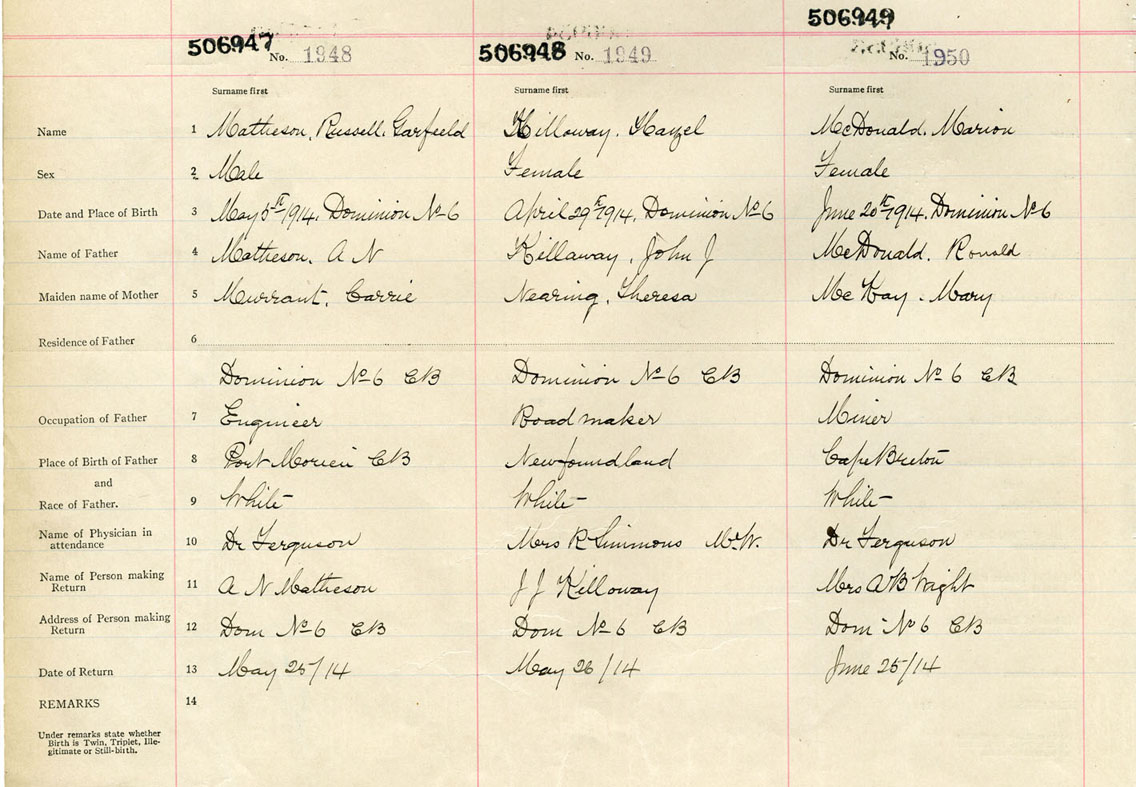 506947 506948 506949
No. 1948 No. 1949 No. 1950
Surname first Surname first Surname first
Name 1 Matheson, Russell, Garfield Killoway, Hazel McDonald, Marion
Sex 2 Male Female Female
Date and Place of Birth 3 May 5th 1914, Dominion No 6 April 29th 1914, Dominion No 6 June 20th 1914, Dominion No 6
Name of Father 4 Matheson, A N Killaway, John J McDonald, Ronald
Maiden name of Mother 5 Murrant, Carrie Nearing, Theresa McKay, Mary
Residence of Father 6
Dominion No 6 CB Dominion No 6 CB Dominion No 6 CB
Occupation of Father 7 Engineer Road maker Miner
Place of Birth of Father 8 Port Morien CB Newfoundland Cape Breton
and
Race of Father. 9 White White White
Name of Physician in
attendance 10 Dr Ferguson Mrs R Simmons M.W. Dr Ferguson
Name of Person making
Return 11 A N Matheson J J Killoway Mrs A B
Address of Person making
Return 12 Dom No 6 CB Dom No 6 CB Dom No 6 CB
Date of Return 13 May 25/14 May 26/14 June 25/14
REMARKS 14
Under remarks state whether
Birth is Twin, Triplet, Ille-
gitimate or Still-birth.